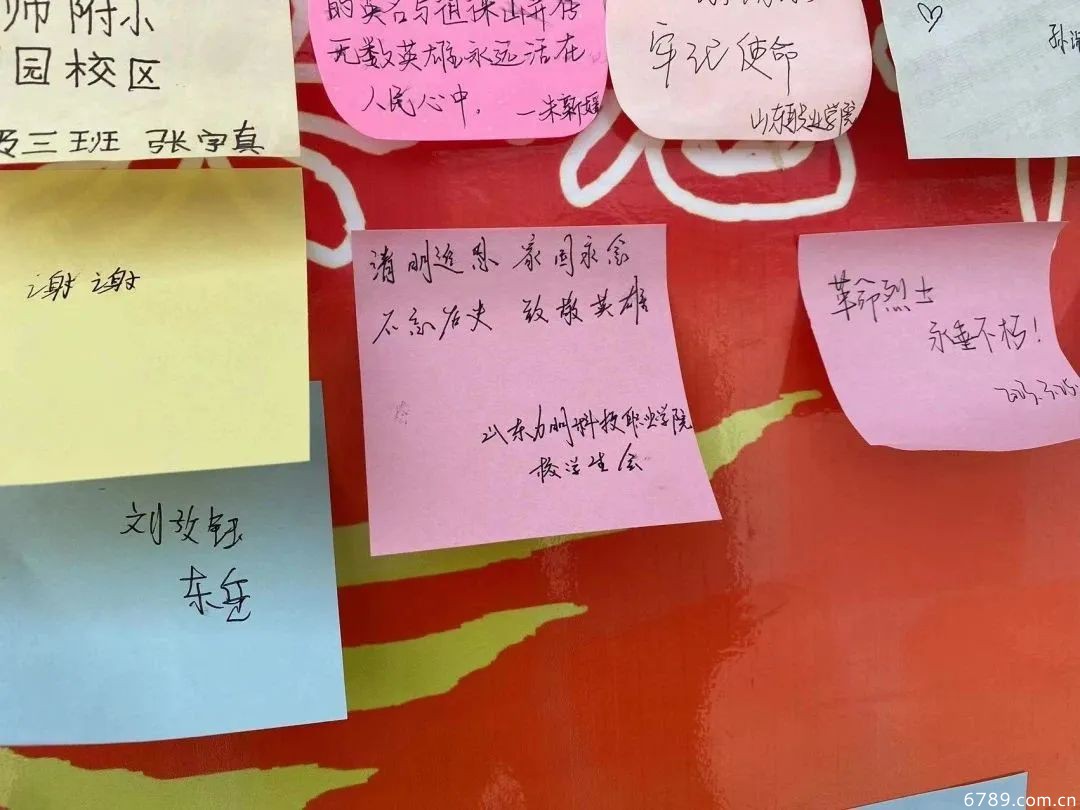 师附小
园校区
三班 张宇真
的英名与祖课山并传
无数英雄永远活在
人民心中。
一朱新媛
牢记使命
山东职业学院
谢谢
清明追思 家国永念
不忘历史 致敬英雄
山东力明科技职业学院
校学生会
革命烈士
永垂不朽!
刘
东岳
6789.com.cn